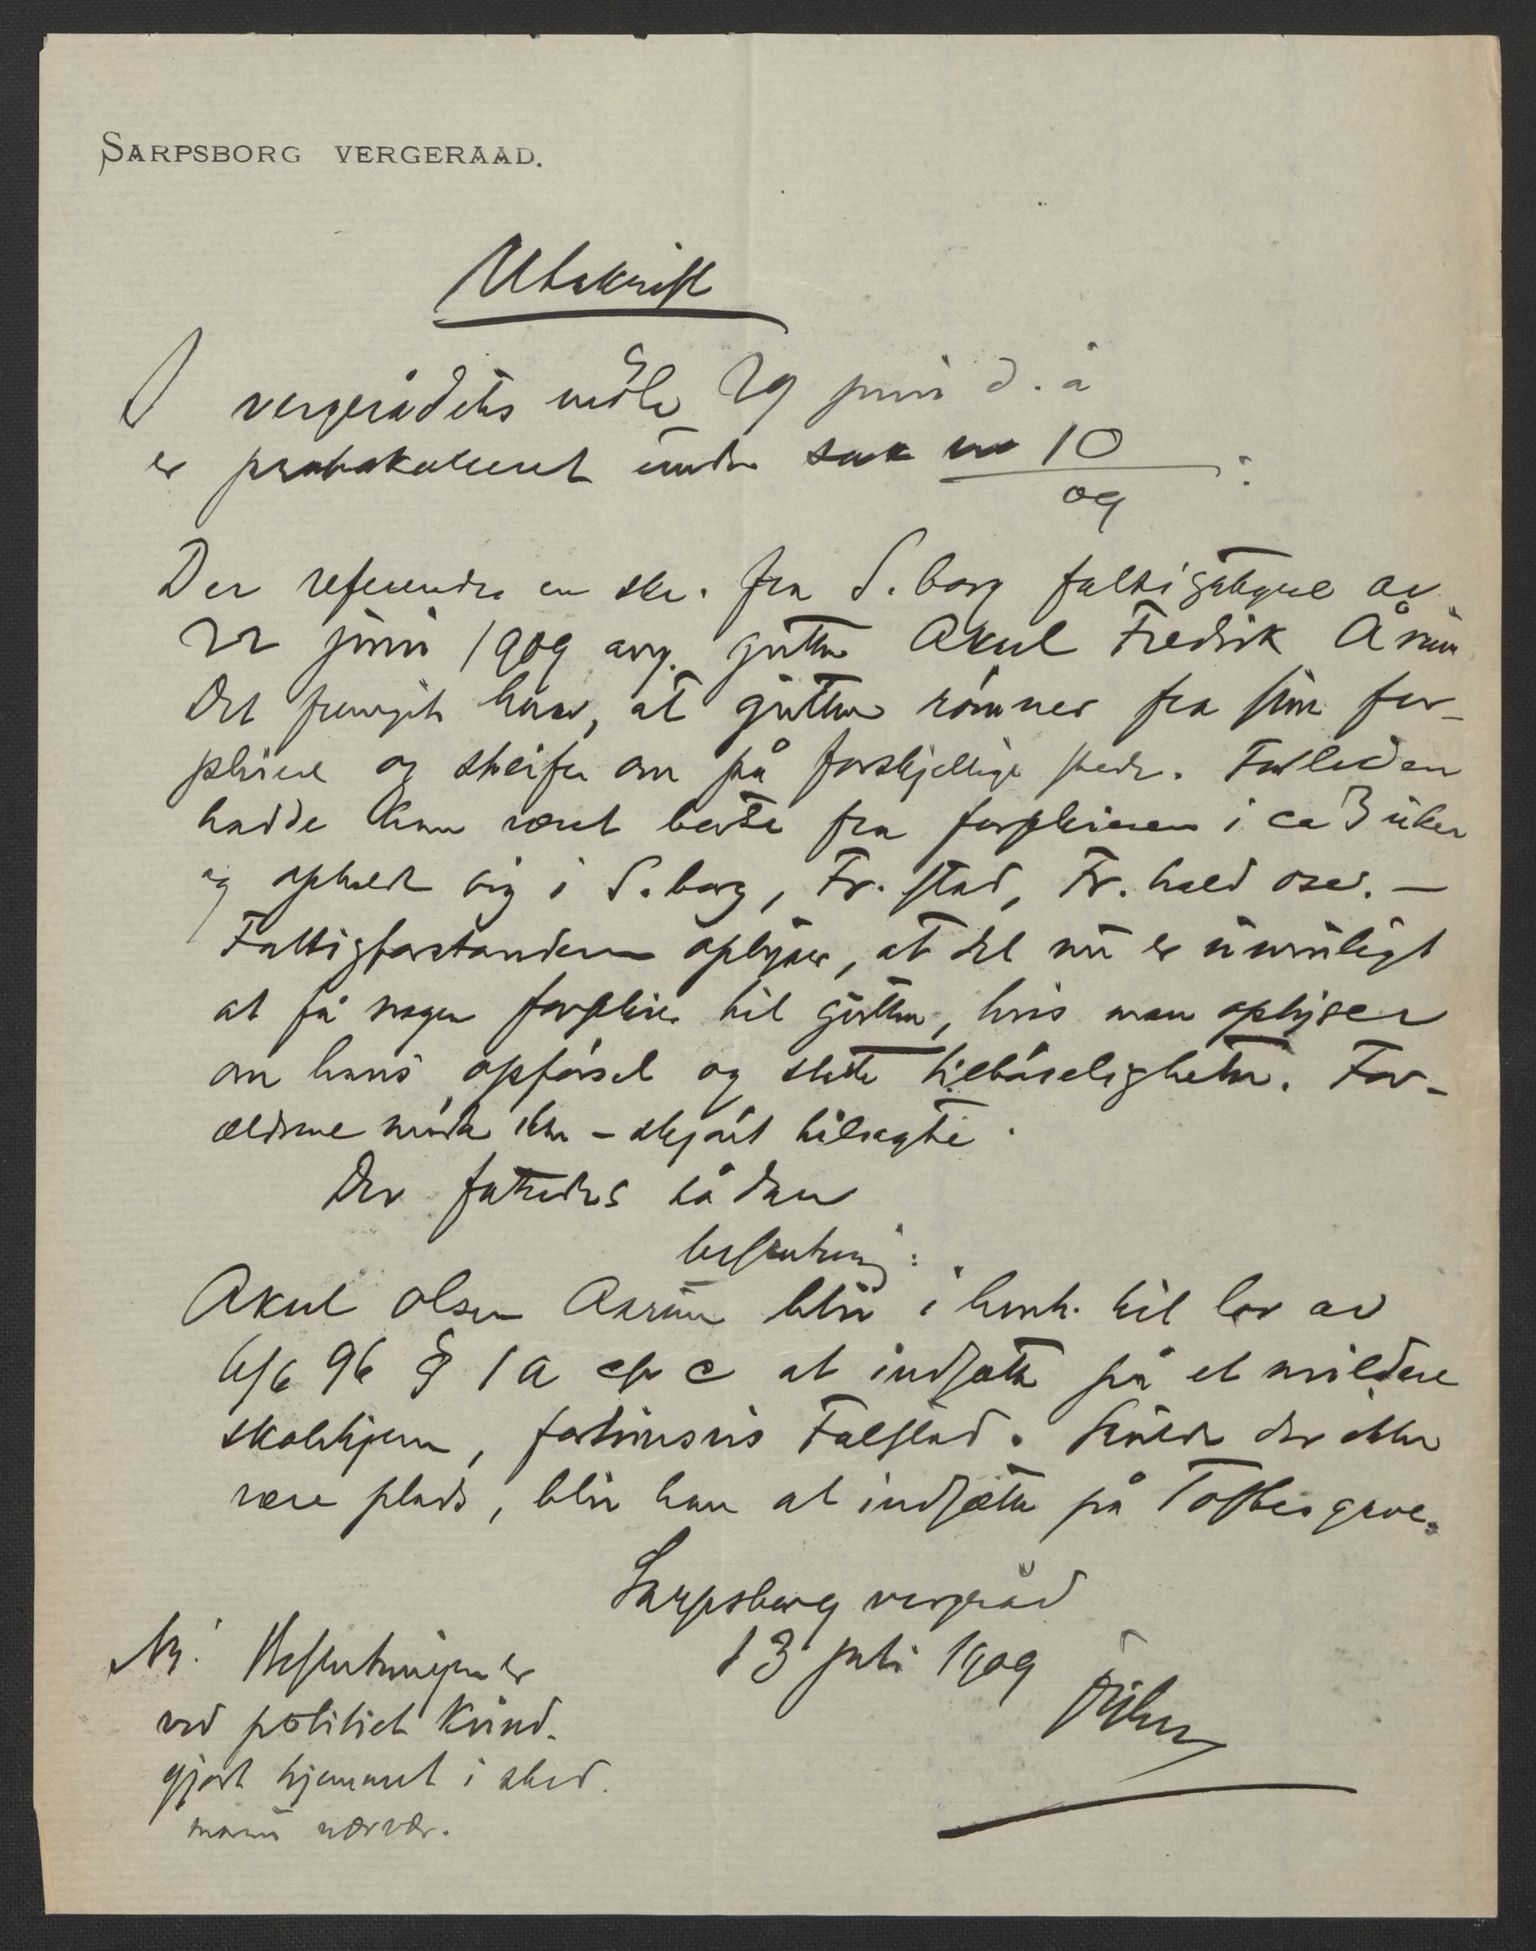 SARPSBORG VERGERAAD.
Utskrift
I vergerådets møte 29 juni d. å
er protokolleret under sak no 10/09 :
Der refereredes en skr. fra S.borg fattigstyre av
22 juni 1909 ang. gutten Aksel Fredrik Årum
Det fremgik herav, at gutten rømmer fra sine for-
pleiere og streifer om på forskjellige steder. Forleden
hadde han været borte fra forpleieren i ca 3 uker
og opholdt sig i S.borg, Fr.stad, Fr.hald osv. —
Fattigforstanderen oplyser, at det nu er umuligt
at få nogen forpleier til gutten, hvis man oplyser
om hans opførsel og slette tilbøieligheter. For-
ældrene møtte ikke – skjønt tilsagte.
Der fattedes sådan
beslutning :
Aksel Olsen Aarum blir i henh. til lov av
6/6 96 § 1 a og c at indsætte på et mildere
skolehjem, fortrinsvis Falstad. Skulde der ikke
være plads, blir han at indsætte på Toftes gave.
Sarpsborg vergeråd
13 juli 1909
Nb. Beslutningen er
ved politiet kund-
gjort hjemmet i sted.
mors nærvær.